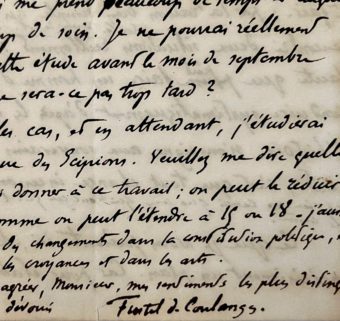 me prend beaucoup de temps et
de soin. Je ne pourrai réellement
cette étude avant le mois de septembre
e sera-ce pas trop tard ?
les cas, et en attendant, j'étudierai
des Scipions. Veuillez me dire quelle
donner à ce travail ; on peut le réduire
comme on peut l'étendre à 15 ou 18 -
Des changements dans la constitution politique,
les croyances et dans les arts.
agréer, Monsieur, mes sentiments les plus disting
dévoués Fustel de Coulanges.